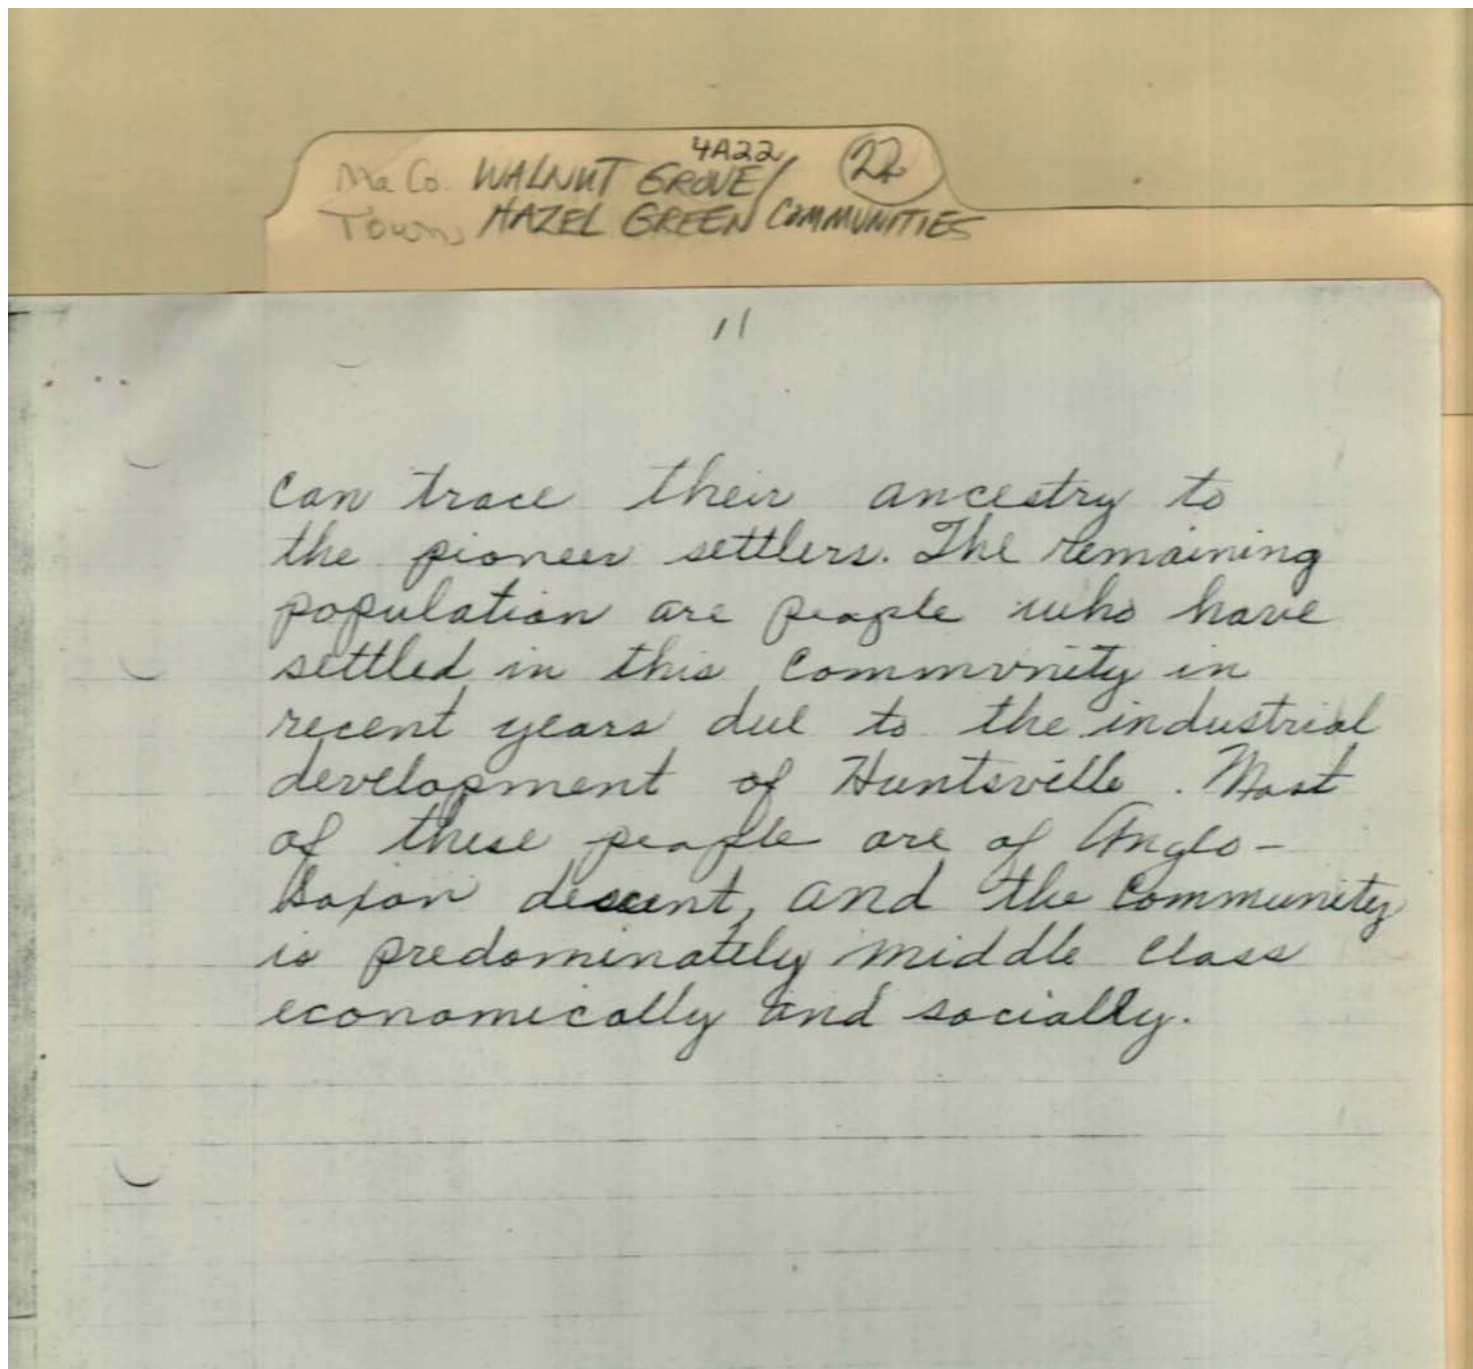 4A22
Ma Co. WALNUT GROVE/ 22
Town HAZEL GREEN COMMUNITIES
11
can trace their ancestry to
the pioneer settlers. The remaining
population are people who have
settled in this community in
recent years due to the industrial
development of Huntsville. Most
of these people are of Anglo-
Saxon descent, and the community
is predominately middle class
economically and socially.